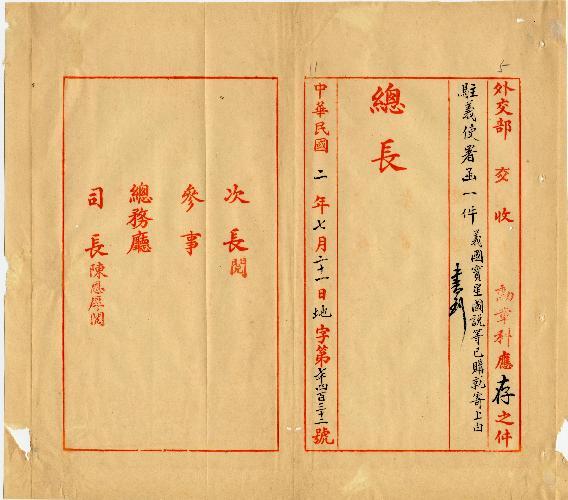 5
外交部 交收 勳章科應存之件
駐義使署函一件 義國寶星圖說等已購就寄上由
總長
11
中華民國二年七月二十一日地字第 四百三十二號
次長閱
參事
總務廳
司長陳恩厚閱